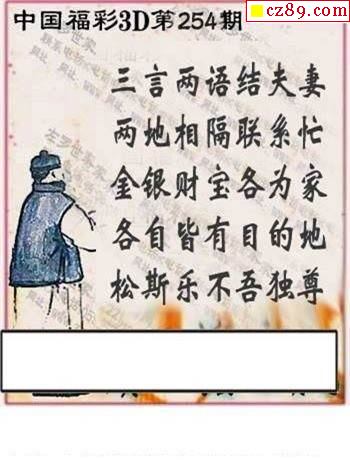 cz89.com
中国福彩3D第254期
三言两语结夫妻
两地相隔联系忙
金银财宝各为家
各自皆有目的地
松斯乐不吾独尊